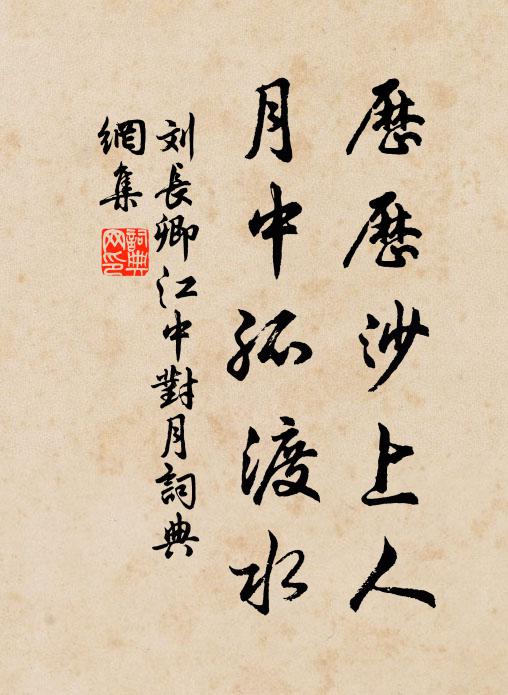 歷歷沙上人
月中孤渡水
刘長卿江中對月詞典
網集
詞典
网印